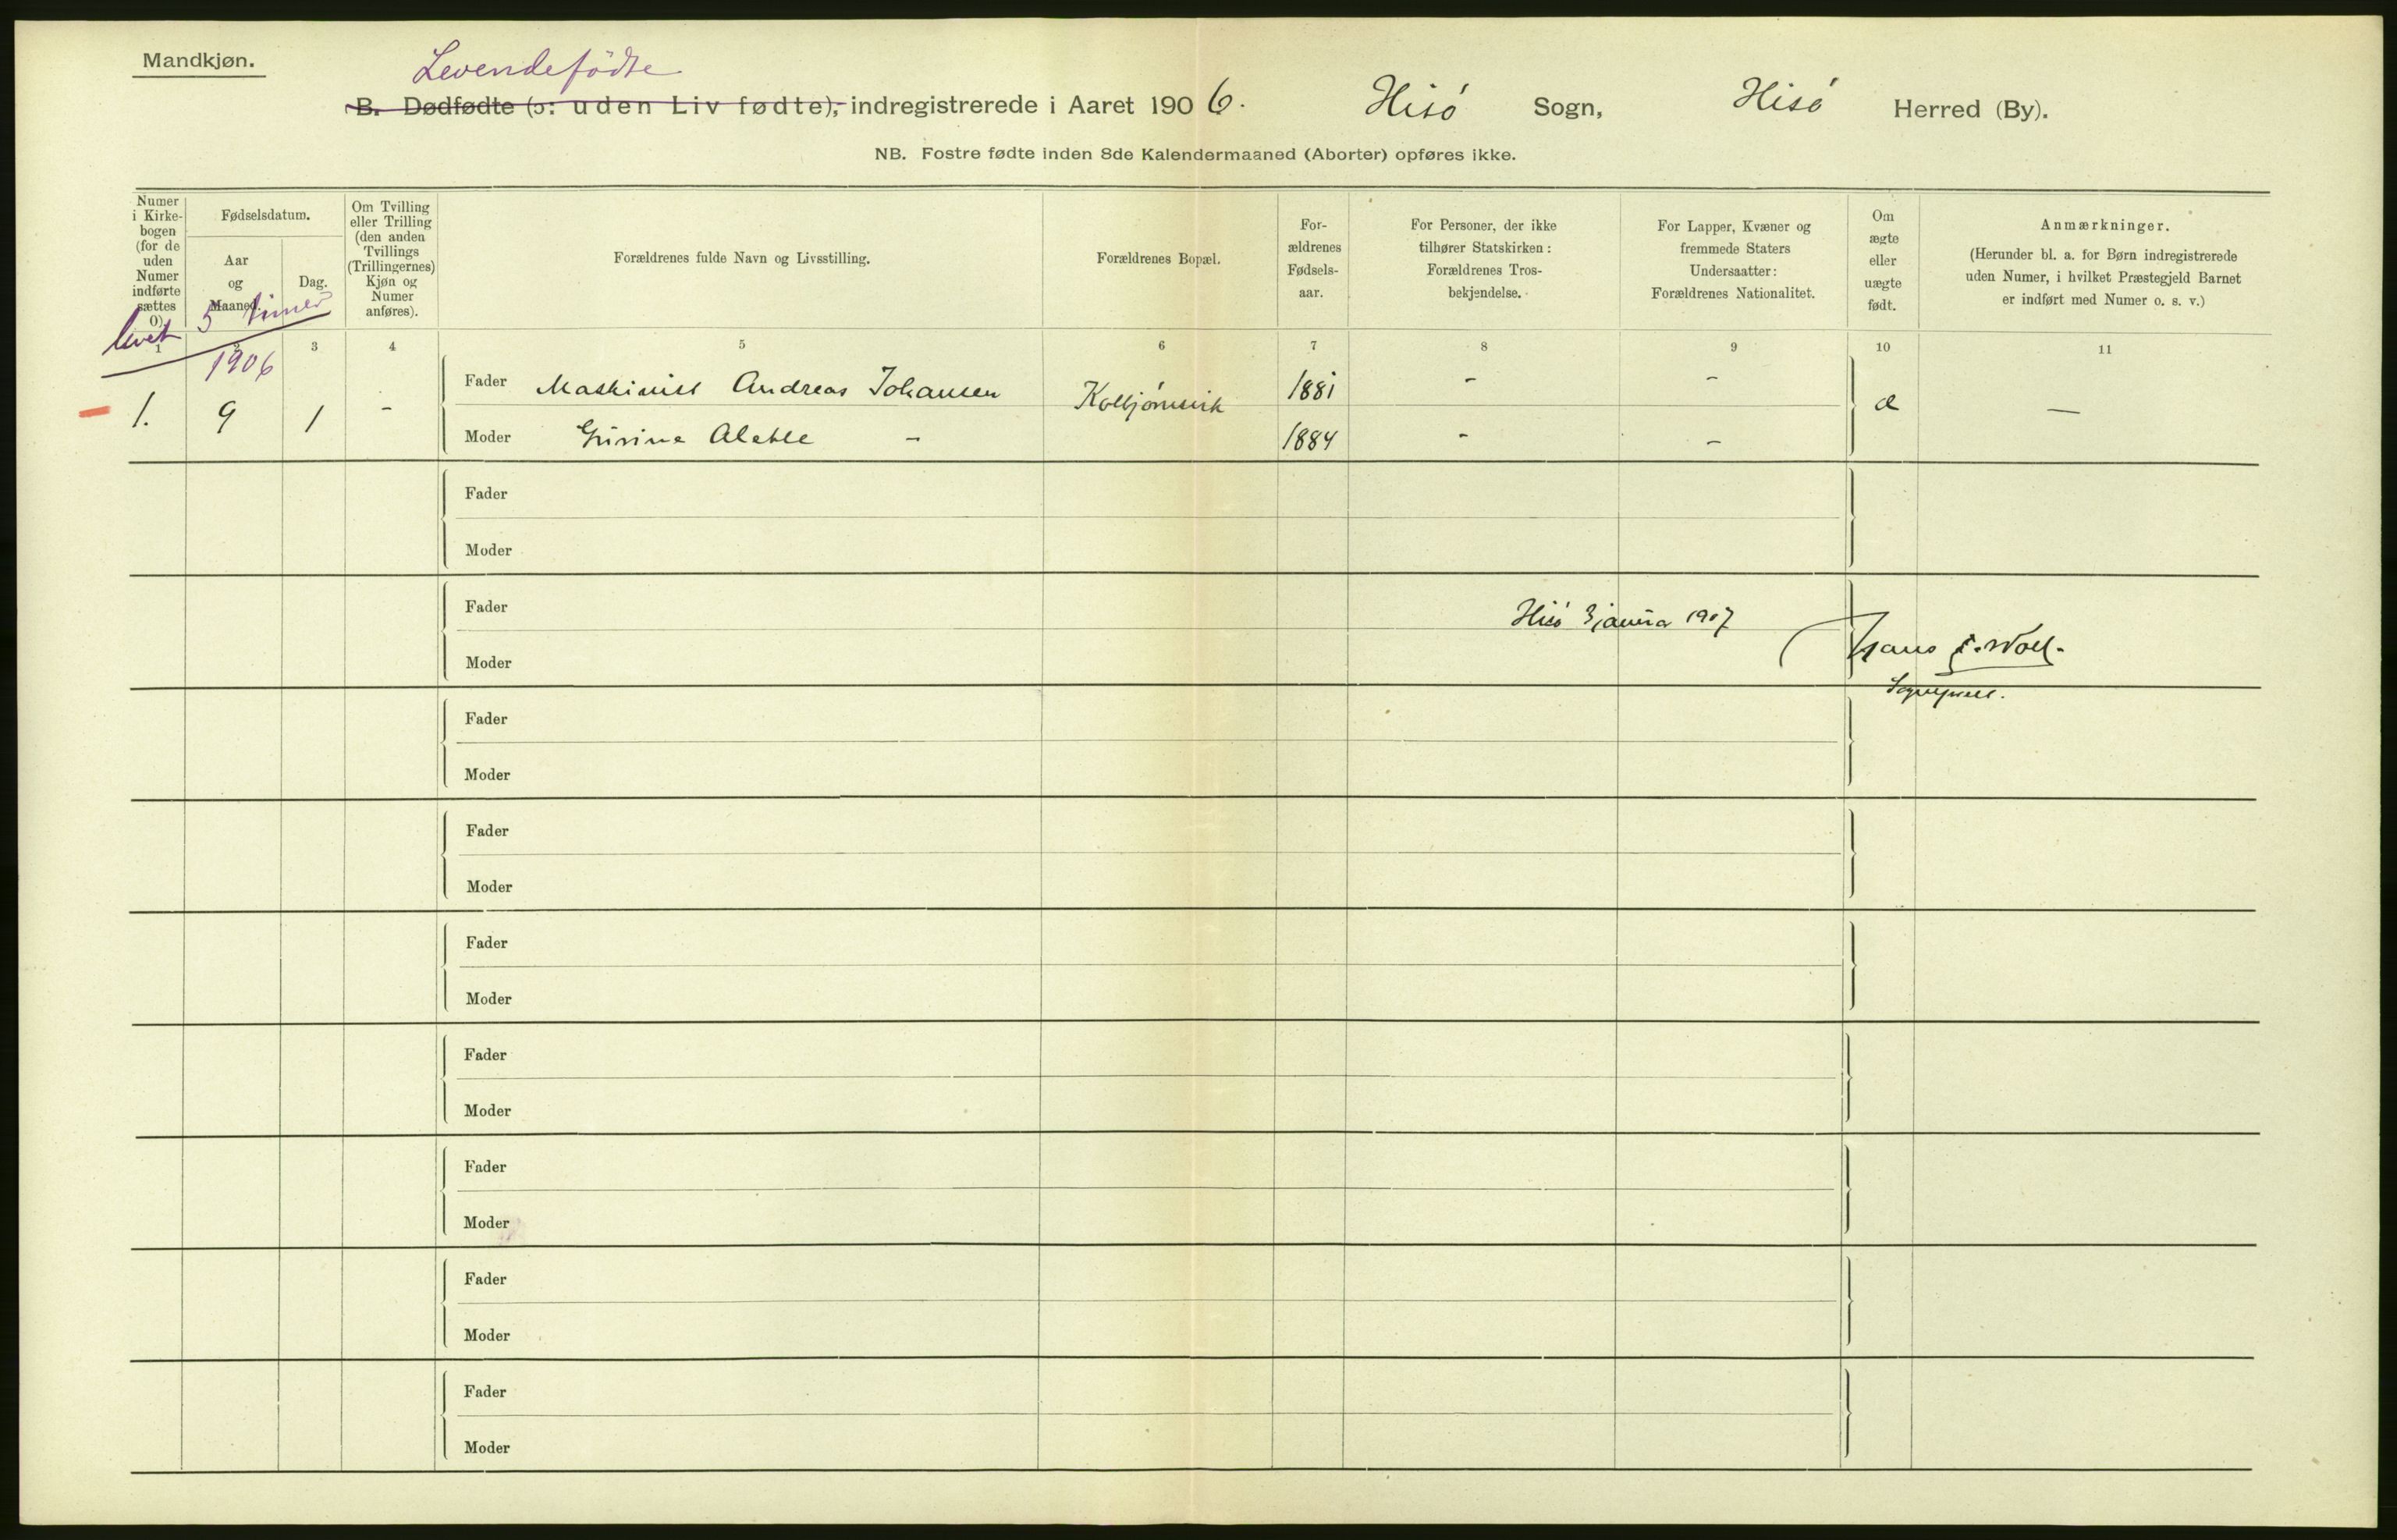 Mandkjøn.
Levendefødte
B. Dødfødte (ɔ: uden Liv fødte), indregistrerede i Aaret 1906. Hisö Sogn, Hisö Herred (By).
NB. Fostre fødte inden 8de Kalendermaaned (Aborter) opføres ikke.
Numer
i Kirke-
bogen
(for de
uden
Numer
indførte
sættes
0).
Fødselsdatum.
Aar
og
Maaned.
Dag.
Om Tvilling
eller Trilling
(den anden
Tvillings
(Trillingernes)
Kjøn og
Numer
anføres).
Forældrenes fulde Navn og Livsstilling.
Forældrenes Bopæl.
For-
ældrenes
Fødsels-
aar.
For Personer, der ikke
tilhører Statskirken:
Forældrenes Tros-
bekjendelse.
For Lapper, Kvæner og
fremmede Staters
Undersaatter:
Forældrenes Nationalitet.
Om
ægte
eller
uægte
født.
Anmærkninger.
(Herunder bl. a. for Børn indregistrerede
uden Numer, i hvilket Præstegjeld Barnet
er indført med Numer o. s. v.)
livet 5 timer
1 2 3 4 5 6 7 8 9 10 11
1906
1. 9 1 -
Fader Maskinist Andreas Johansen Kolbjørnsvik 1881 - - æ —
Moder Alette - 1884 - -
Fader
Moder
Fader
Hisö 3 januar 1907
Moder
Hans
Sogneprest.
Fader
Moder
Fader
Moder
Fader
Moder
Fader
Moder
Fader
Moder
Fader
Moder
Fader
Moder